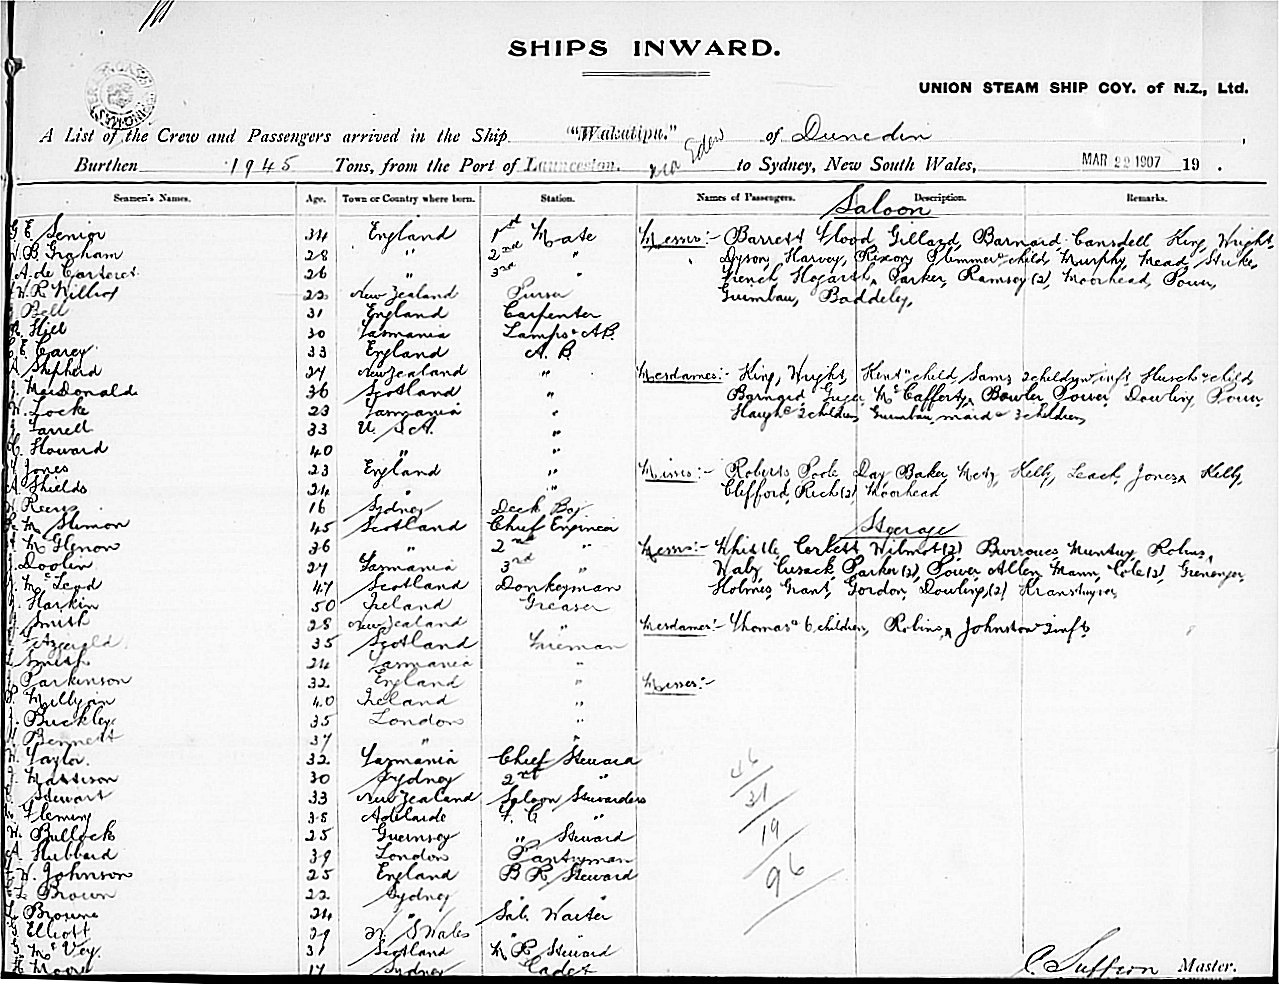 SHIPS INWARD.
UNION STEAM SHIP COY. of N.Z., Ltd.
A List of the Crew and Passengers arrived in the Ship "Wakatipu." of Dunedin
Burthen 1945 Tons, from the Port of Launceston. via Eden to Sydney, New South Wales, MAR 22 1907 19 .
Seamen's Names. Age. Town or Country where born. Station. Names of Passengers. Description. Remarks.
Saloon
E Senior 34 England 1st Mate Messrs:- Barrett Flood, Gillard, Barnard, Cansdell King, Wright,
W.B. Graham 28 " 2nd " Dyson, Harvey, Rixon, Plemmer & child, Murphy, Mead,
A. de Carteret 26 " 3rd " French, Hogarth, Parker, Ramsey (2), Moorhead, Power,
22 New Zealand Purser Baddeley,
Bell 31 England Carpenter
Hill 30 Tasmania Lamps & A.B.
E. Carey 33 England A.B.
A. Shepherd 27 New Zealand " Mesdames:- King, Wright, Kent & child, Sams 2 children & inft, & child,
J. MacDonald 36 Scotland " Barnard, McCafferty, Bowler, Power, Dowling,
W. Locke 23 Tasmania " 2 children, maid & 3 children,
Farrell 33 U.S.A. "
Howard 40 " "
Jones 23 England " Misses:- Roberts, Poole, Day, Baker, Metz, Kelly, Leach, Jones, Kelly,
A. Shields 24 " " Clifford, Rich (2), Moorhead
16 Sydney Deck Boy
45 Scotland Chief Engineer Steerage
36 " 2nd " Messrs:- Whittle, Corbett, Wilmot (2), Burrows, Robins,
Doolin 27 Tasmania 3rd " Cusack, Parker (2), Power, Allen, Mann, Cole (2),
McLeod 47 Scotland Donkeyman Holmes, Grant, Gordon, Dowling (2)
Harkin 50 Ireland Greaser
Smith 28 New Zealand " Mesdames:- Thomas & 6 children, Robins, Johnston & inft
Fitzgerald 35 Scotland Fireman
Smith 24 Tasmania "
Parkinson 32 England " Misses:-
P. Milligan 40 Ireland "
J. Buckley 35 London "
Bennett 37 " "
W. Taylor 32 Tasmania Chief Steward
J. 30 Sydney 2nd "
46
Stewart 33 New Zealand Saloon Stewardess
31
Fleming 38 Adelaide F. C. "
19
W. Bullock 25 Guernsey " Steward
A. Hubbard 39 London Pantryman
96
W. Johnson 25 England B R Steward
L Brown 22 Sydney "
L. Browne 24 " Sal. Waiter
Elliott 29 N. S Wales "
McVey 31 Scotland M R Steward
H. Moore 17 Sydney Cadet
C. Suffern Master.